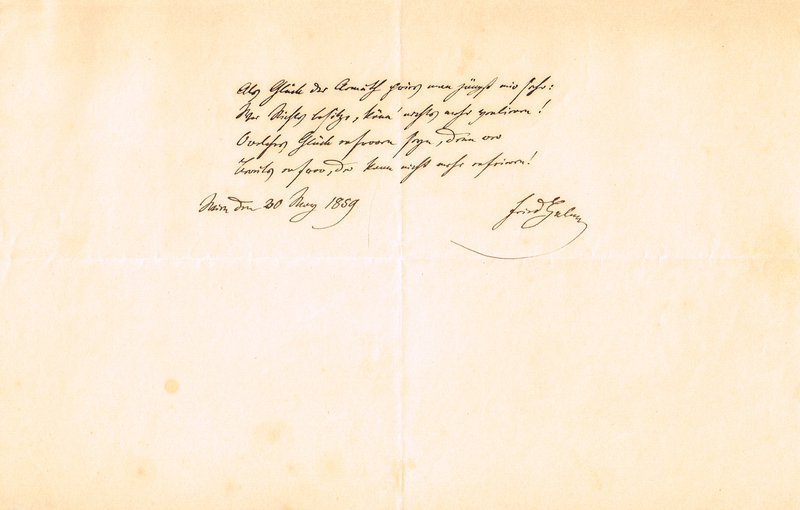 Als Glück der Armuth pries man jüngst mir sehr:
Wer Nichts besitze, könn' nichts mehr verlieren!
Welches Glück erfroren seyn, denn wer
Bereits erfror, der kann nicht mehr erfrieren!
Wien den 20 May 1859
Fried. Halm